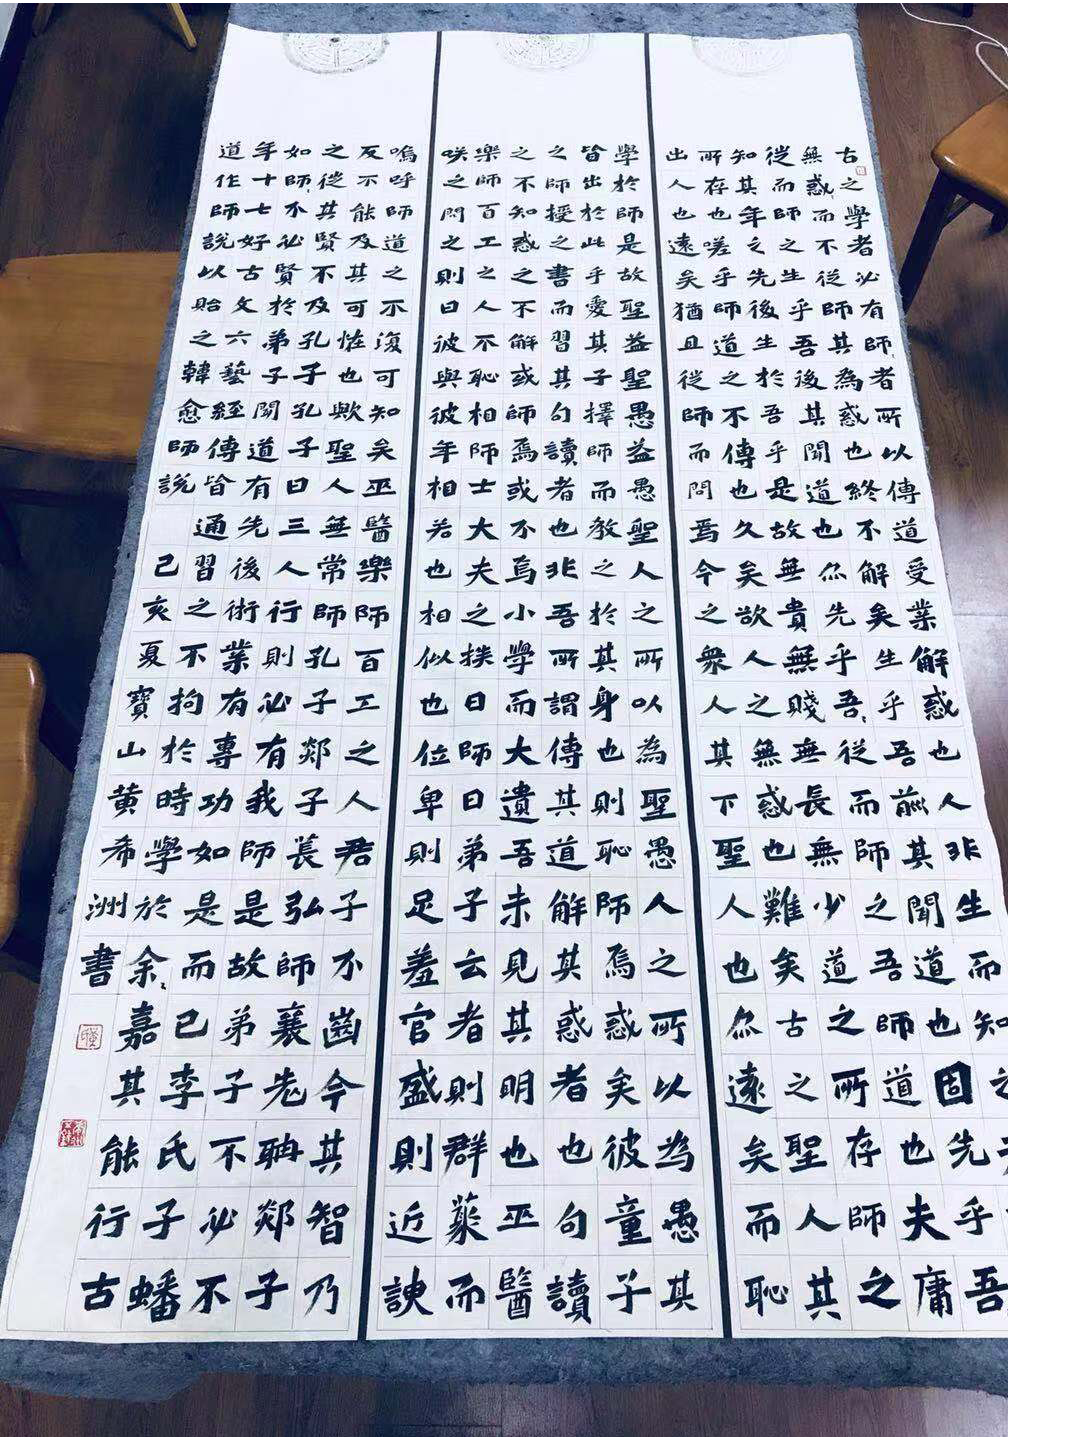 古之學者必有師者所以傳道受業解惑也人非生而知之
無惑而不從師其為惑也終不解矣生乎吾前其聞道也固先乎吾
從而師之生乎吾後其聞道也尔先乎吾從而師之吾師道也夫庸
知其年之先後生於吾乎是故無貴無賤無長無少道之所存師之
所存也嗟乎師道之不傳也久矣欲人之無惑也難矣古之聖人其
出人也遠矣猶且從師而問焉今之眾人其下聖人也尔遠矣而恥
學於師是故聖益聖愚益愚聖人之所以為聖愚人之所以為愚其
皆出於此乎愛其子擇師而教之於其身也則恥師焉惑矣彼童子
之師授之書而習其句讀者也非吾所謂傳其道解其惑者也句讀
之不知惑之不解或師焉或不焉小學而大遺吾未見其明也巫醫
樂師百工之人不恥相師士大夫之族曰師曰弟子云者則群聚而
咲之問之則曰彼與彼年相若也相似也位卑則足羞官盛則近諛
嗚呼師道之不復可知矣巫醫樂師百工之人君子不齒今其智乃
反不能及其可怪也歟聖人無常師孔子郯子萇弘師襄老聃郯子
之從其賢不及孔子孔子曰三人行則必有我師是故弟子不必不
如師不必賢於弟子聞道有先後術業有專功如是而已李氏子蟠
年十七好古文六藝經傳皆通習之不拘於時學於余嘉其能行古
道作師說以貽之韓愈師說
己亥夏寶山黃希洲書